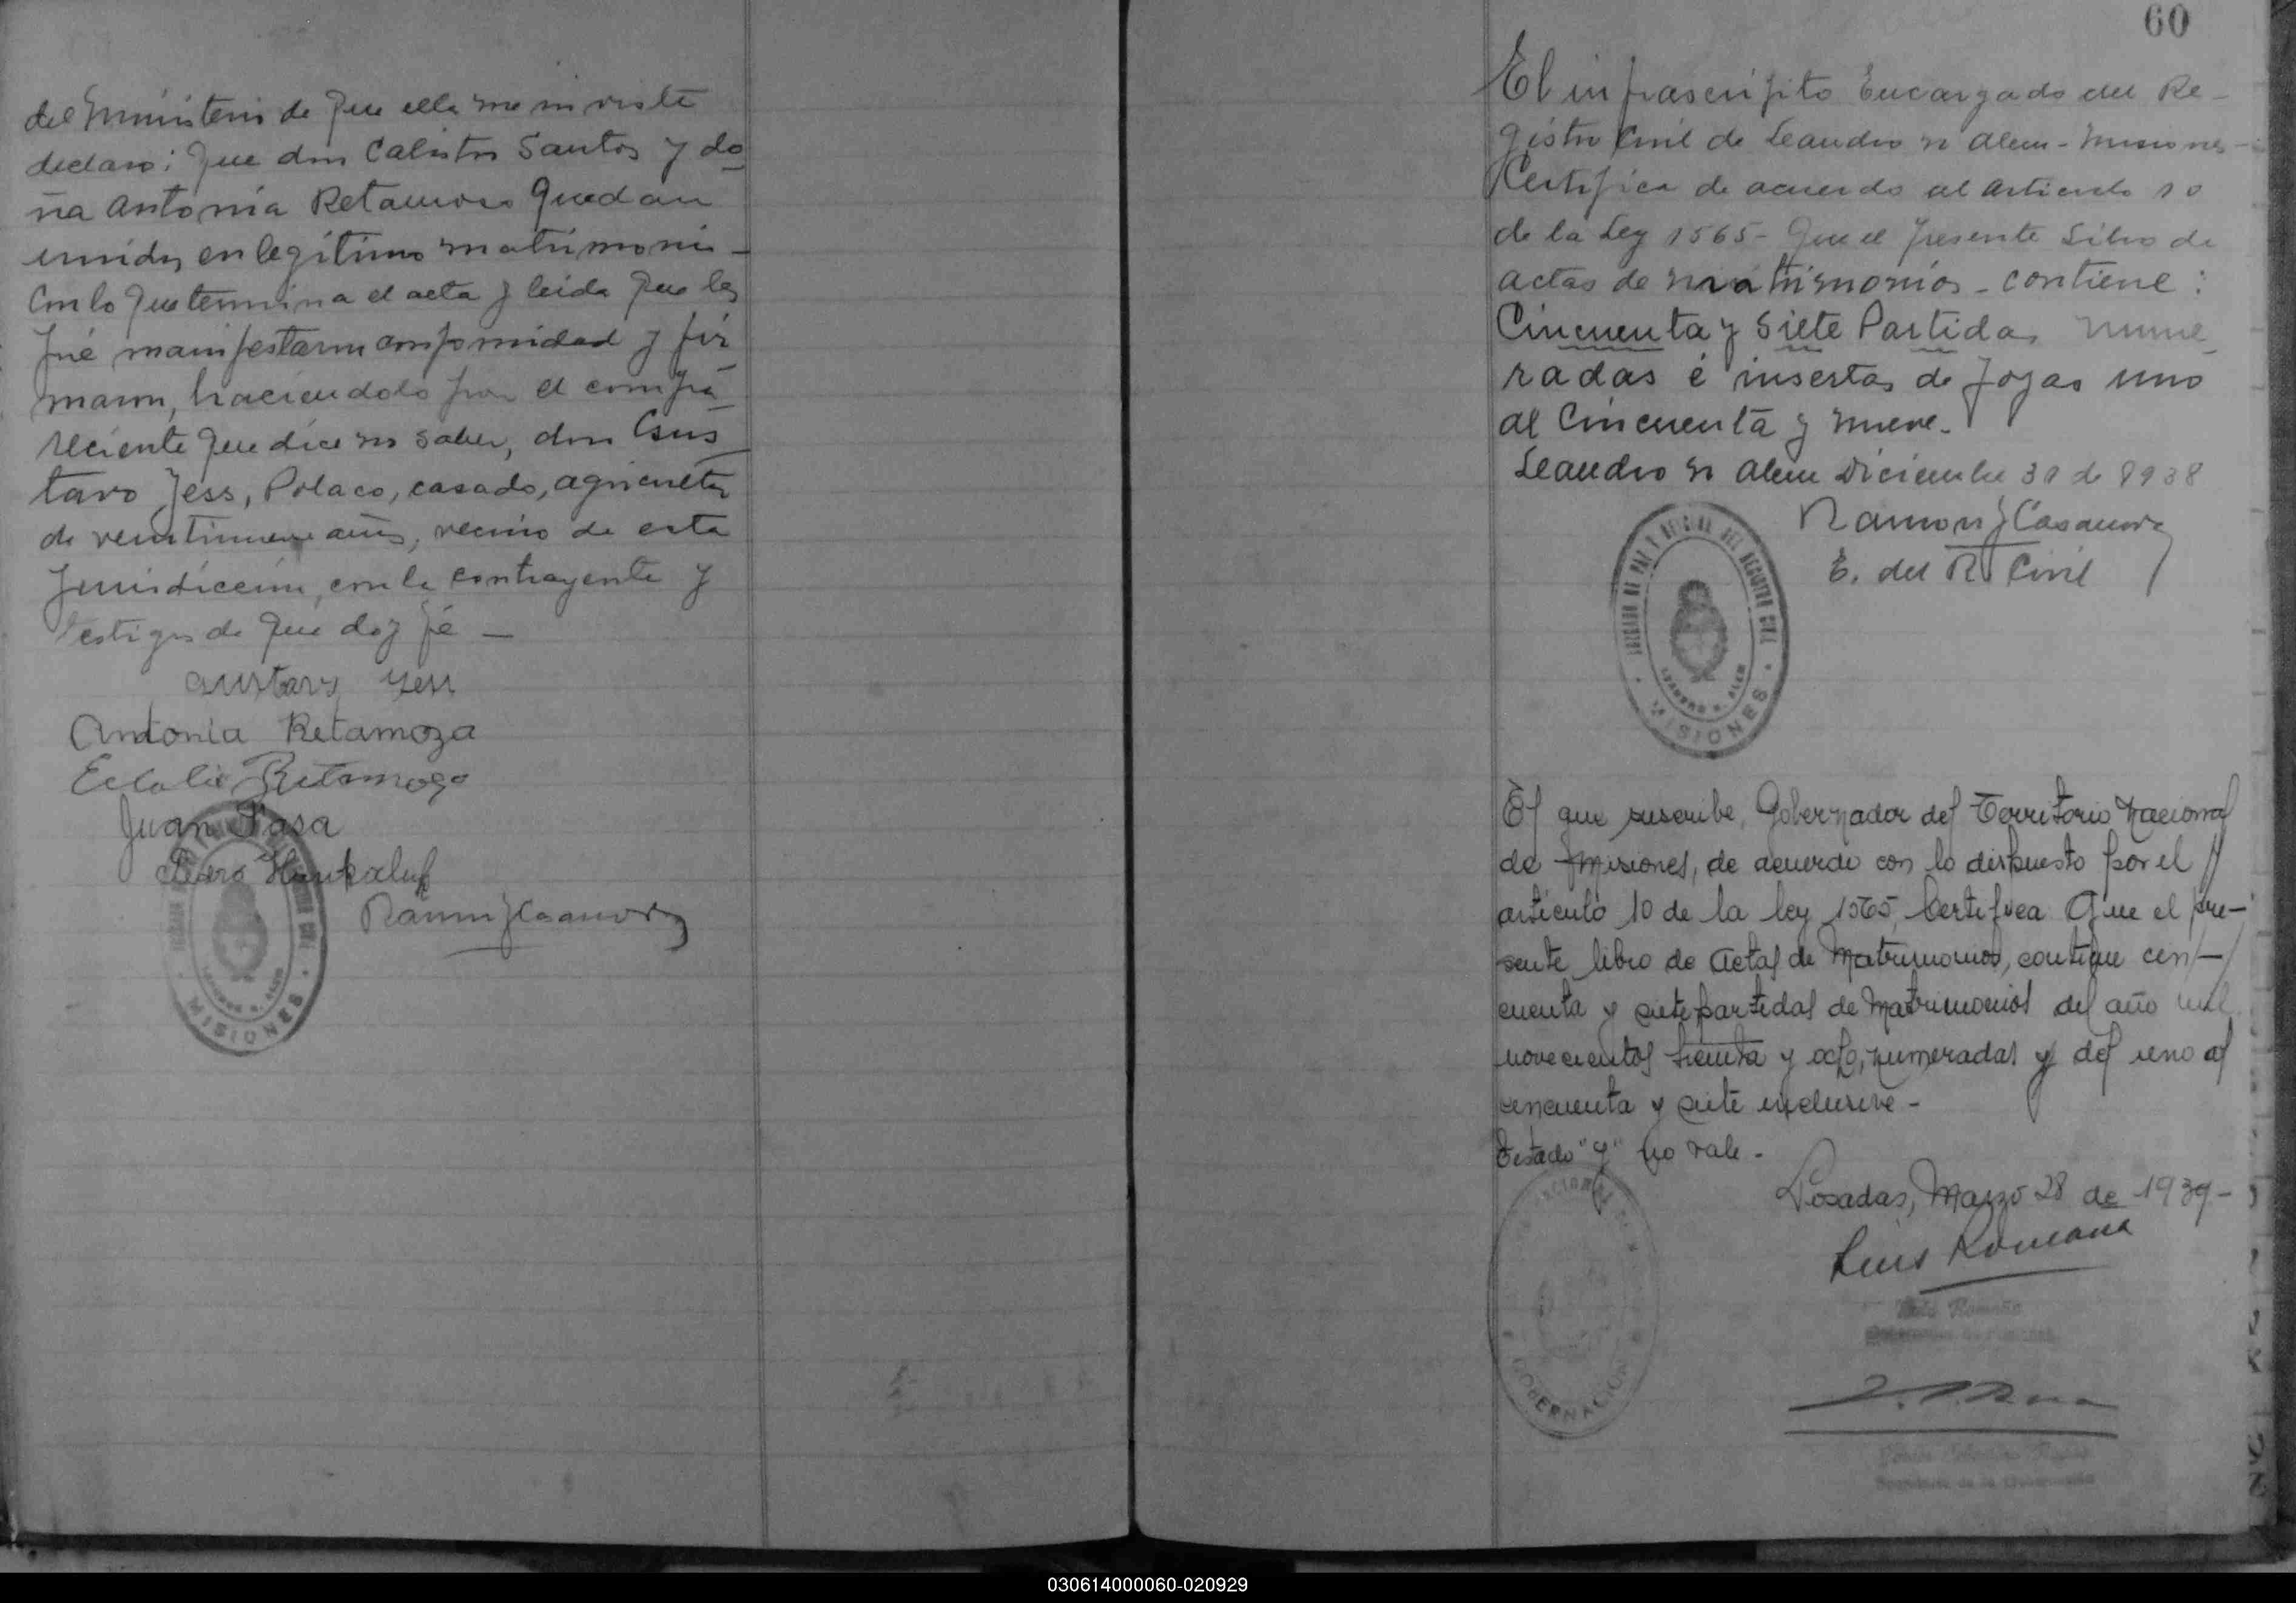 del Ministerio de que ella me inviste
declaro: Que don Calistro Santos y do-
ña Antonia Retamoso Quedan
unidos en legítimo matrimonio -
Con lo que termina el acta y leida que les
fué manifestaron conformidad y fir-
maron, haciendolo por el compa-
reciente que dice no saber, don Gus-
tavo Jess, Polaco, casado, agricultor
de veintinueve años, vecino de esta
Jurisdiccion, con la contrayente y
testigos de que doy fé —
Gustav Jess
Antonia Retamoza
Juan Sasa
Ramon J Casanova
MISIONES
60
El infrascripto Encargado del Re-
gistro Civil de Leandro N Alem - Misiones -
Certifica de acuerdo al Articulo 10
de la Ley 1565 - Que el presente Libro de
actas de matrimonios - contiene :
Cincuenta y Siete Partidas nume-
radas é insertas de fojas uno
al Cincuenta y nueve -
Leandro N Alem Diciembre 31 de 1938
Ramon J Casanova
E. del R Civil
JUZGADO DE PAZ Y OFICINA DEL REGISTRO CIVIL
LEANDRO N. ALEM
MISIONES
El que suscribe, Gobernador del Territorio Nacional
de Misiones, de acuerdo con lo dispuesto por el
articulo 10 de la ley 1565, Certifica Que el pre-
sente libro de Actas de Matrimonios, contiene cin-
cuenta y siete partidas de Matrimonios del año mil
novecientos treinta y ocho, numeradas y del uno al
cincuenta y siete inclusive -
Testado "y" no vale -
Posadas, Marzo 28 de 1939 -
Luis Romaña
GOBERNACION
Luis Romaña
Secretario de la Gobernación
030614000060-020929